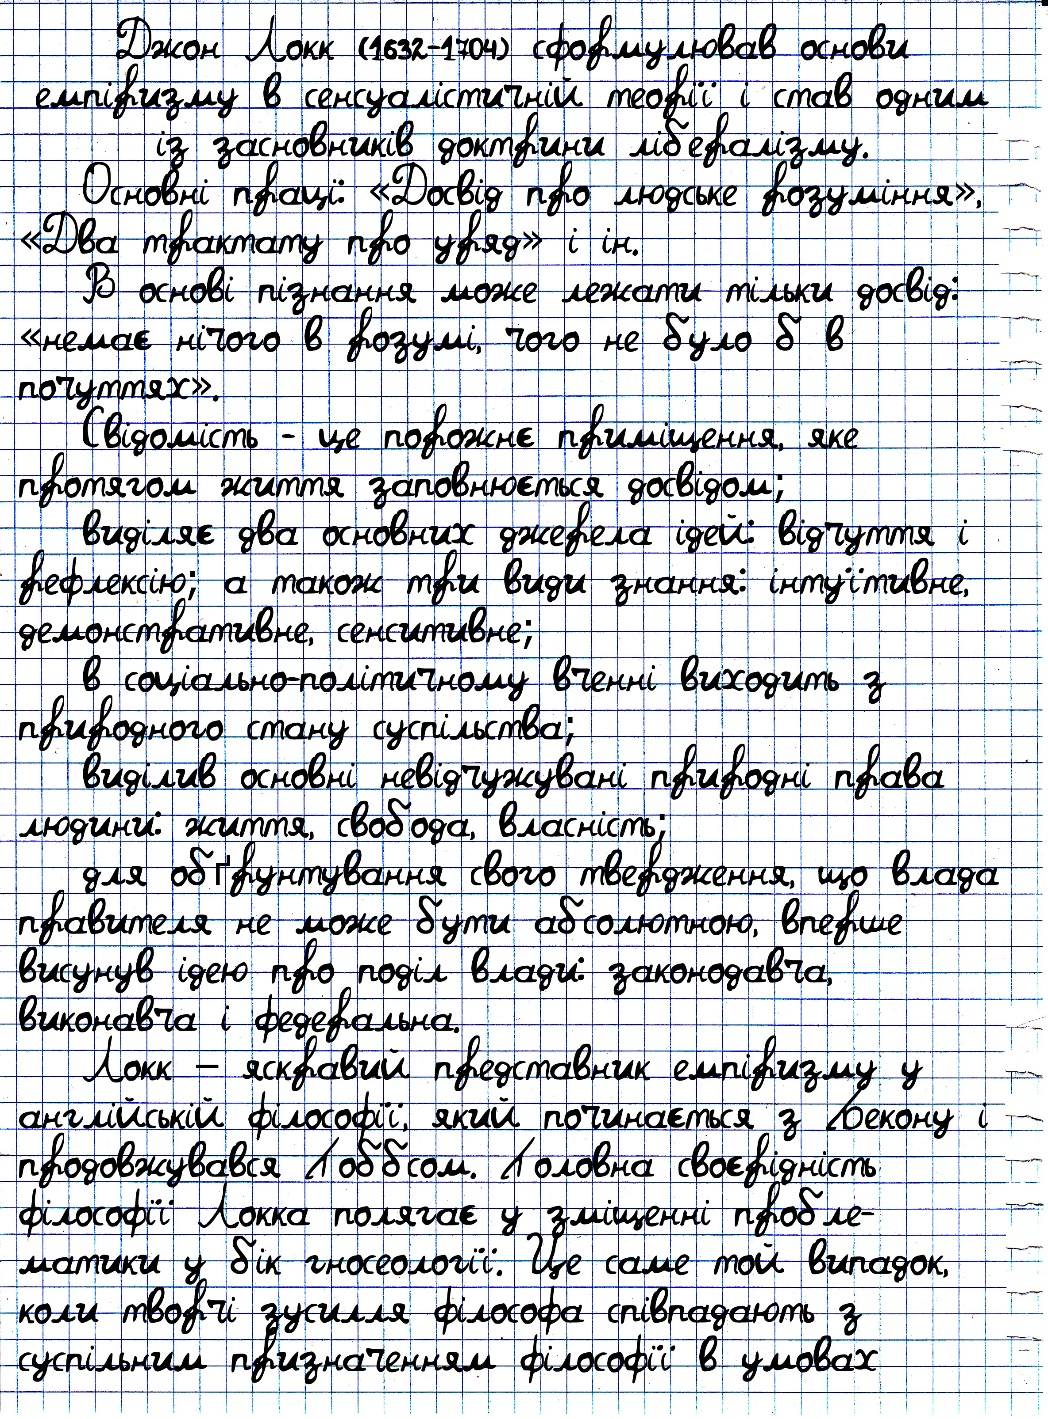 Джон Локк (1632-1704) сформулював основи
емпіризму в сенсуалістичній теорії і став одним
із засновників доктрини лібералізму.
Основні праці: «Досвід про людське розуміння»,
«Два трактату про уряд» і ін.
В основі пізнання може лежати тільки досвід:
«немає нічого в розумі, чого не було б в
почуттях».
Свідомість - це порожнє приміщення, яке
протягом життя заповнюється досвідом;
виділяє два основних джерела ідей: відчуття і
рефлексію; а також три види знання: інтуїтивне,
демонстративне, сенситивне;
в соціально-політичному вченні виходить з
природного стану суспільства;
виділив основні невідчужувані природні права
людини: життя, свобода, власність;
для обґрунтування свого твердження, що влада
правителя не може бути абсолютною, вперше
висунув ідею про поділ влади: законодавча,
виконавча і федеральна.
Локк – яскравий представник емпіризму у
англійській філософії, який починається з Бекону і
продовжувався Гоббсом. Головна своєрідність
філософії Локка полягає у зміщенні пробле-
матики у бік гносеології. Це саме той випадок,
коли творчі зусилля філософа співпадають з
суспільним призначенням філософії в умовах